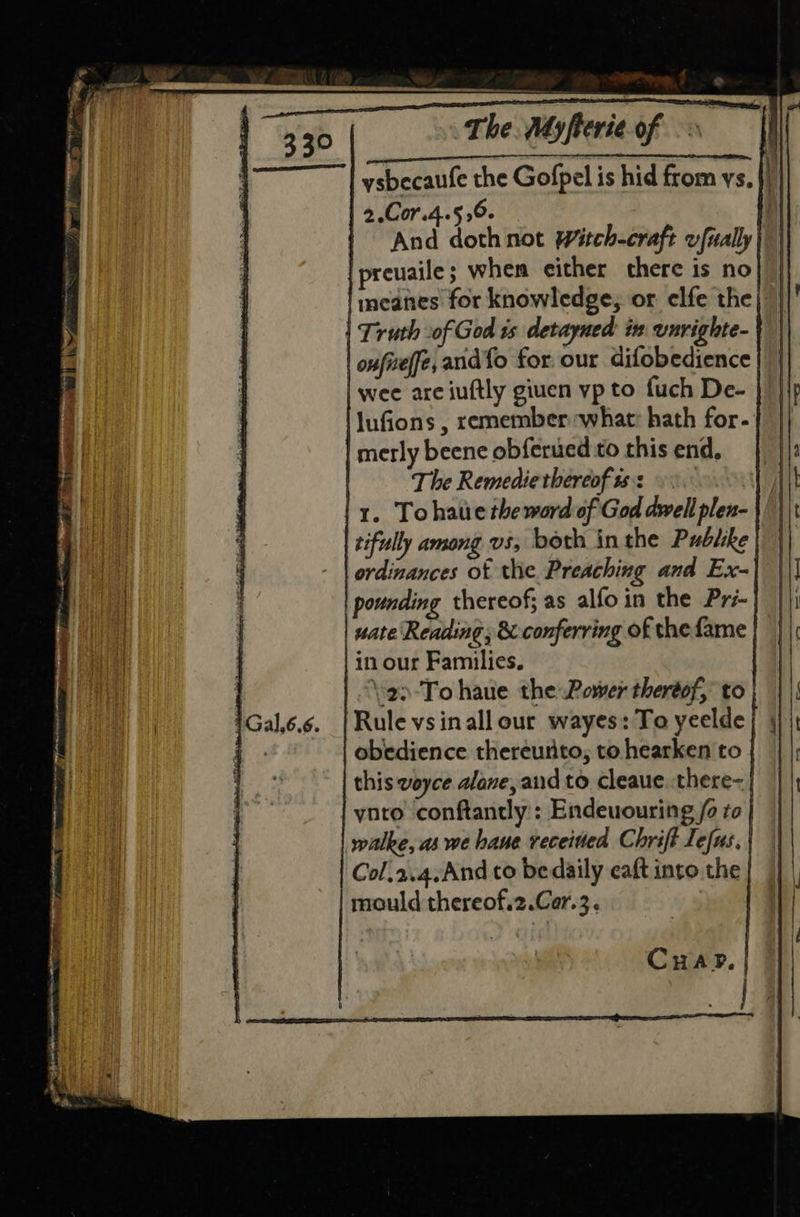 330
The Myſterie of
vsbecauſe the Goſpel is hid from vs.
2.Cor.4.5,6.
And doth not Witch-craft vſually
preuaile; when either there is no
meanes for knowledge, or elſe the
Truth of God is detayned in vnrighte-
ouſneſſe, and ſo for our diſobedience
wee are iuſtly giuen vp to ſuch De-
luſions, remember what hath for-
merly beene obſerued to this end.
The Remedie thereof is:
1. To haue the word of God dwell plen-
tifully among vs, both in the Publike
ordinances of the Preaching and Ex-
pounding thereof; as alſo in the Pri-
uate Reading, & conferring of the ſame
in our Families.
2. To haue the Power thereof, to
Gal.6.6.
Rule vs in all our wayes: To yeelde
obedience thereunto, to hearken to
this voyce alone, and to cleaue there-
vnto conſtantly: Endeuouring ſo to
walke, as we haue receiued Chriſt Ieſus.
Col.2.4. And to be daily caſt into the
mould thereof.2.Cor.3.
CHAP.